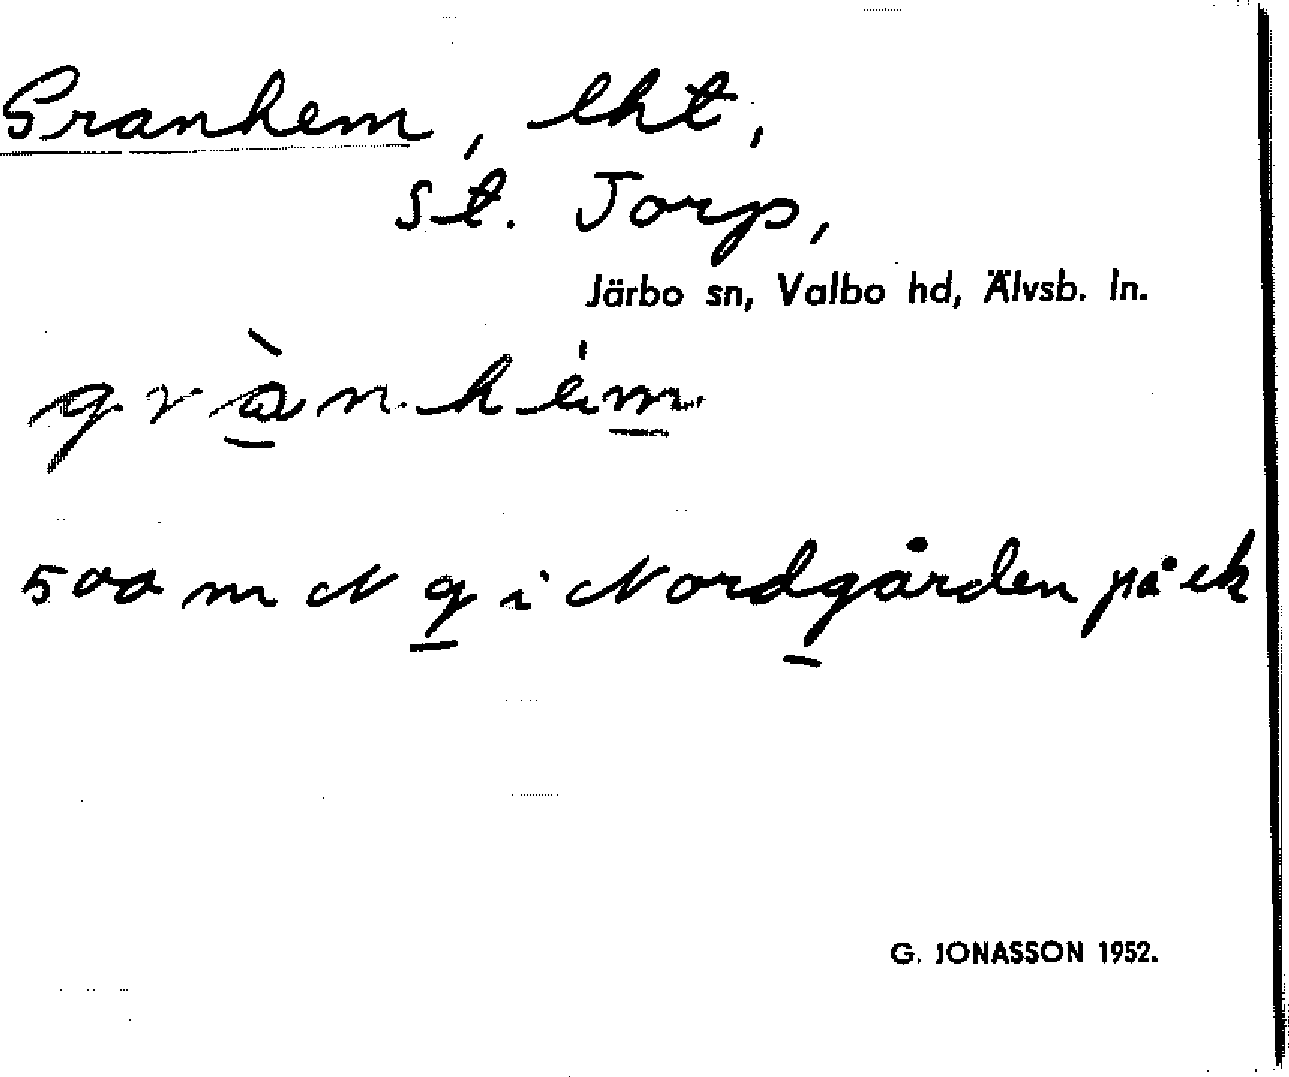 Granhem, lht,
St. Torp,
Järbo sn, Valbo hd, Älvsb. ln.
grànhém
500 m N g i Nordgården på ek
G. JONASSON 1952.